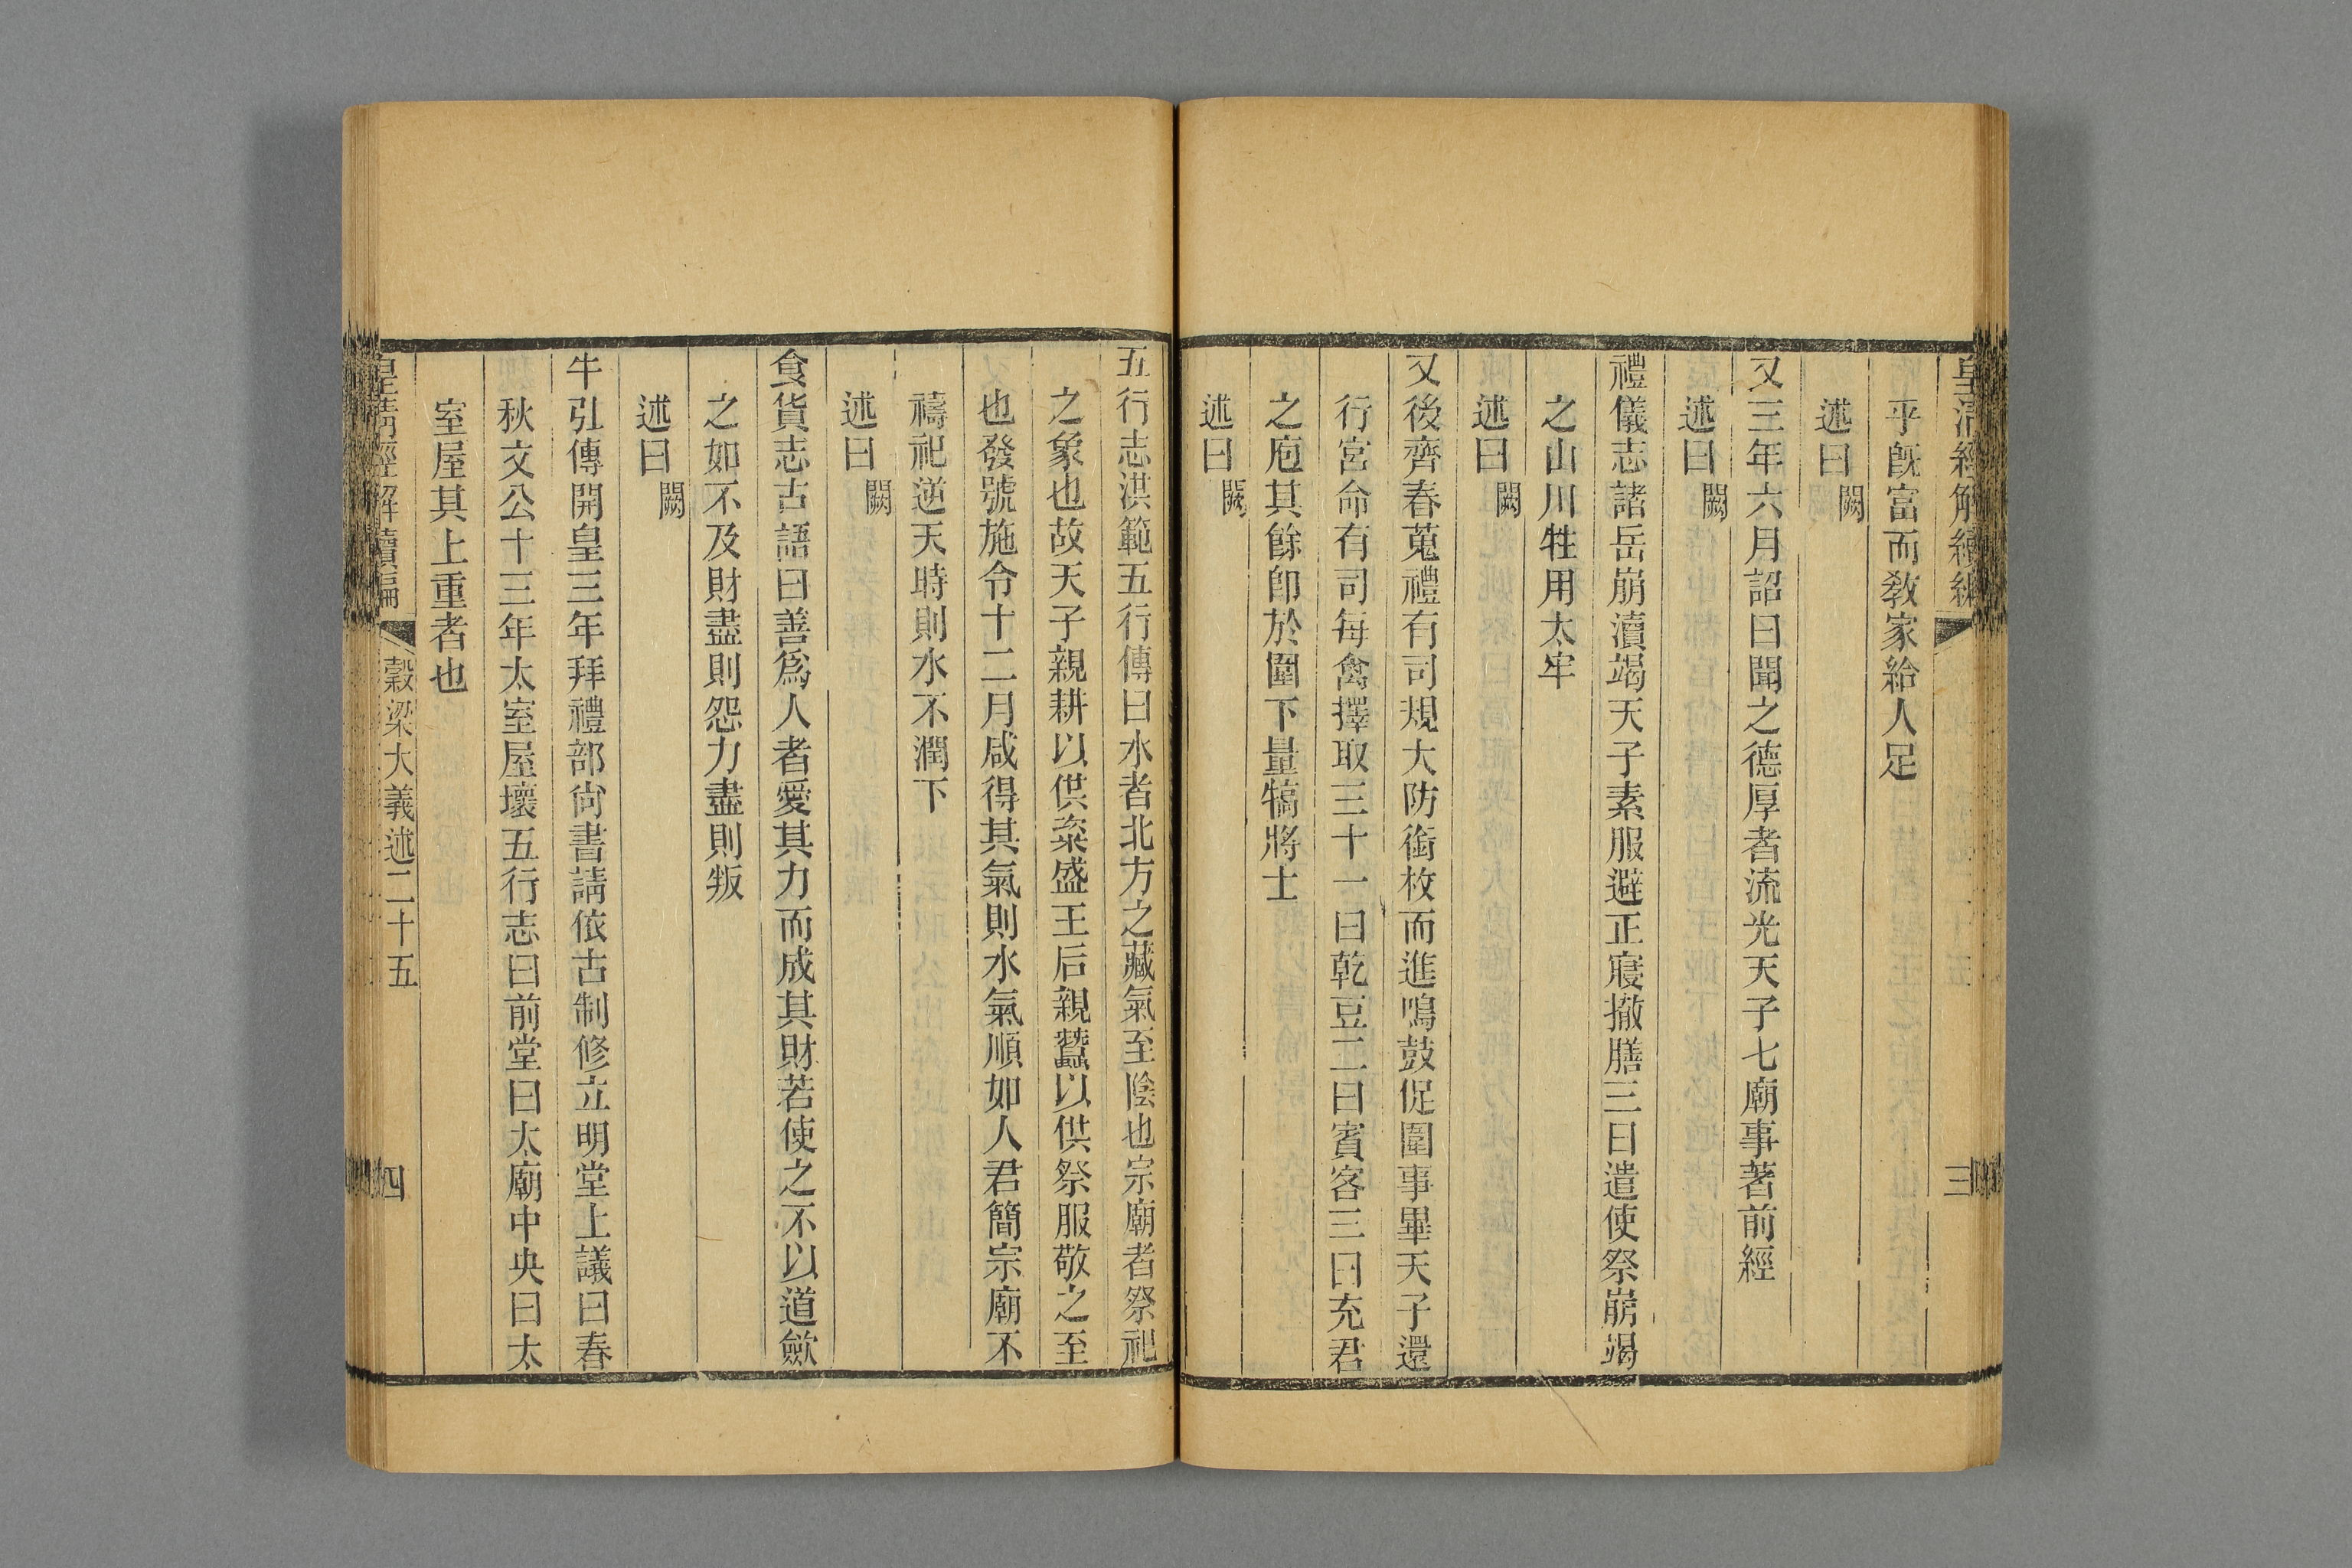 皇清經解續編
三
平旣富而敎家給人足
述曰闕
又三年六月詔曰聞之德厚者流光天子七廟事著前經
述曰闕
禮儀志諸岳崩瀆竭天子素服避正寢撤膳三日遣使祭崩竭
之山川牲用太牢
述曰闕
又後齊春蒐禮有司規大防銜枚而進鳴鼓促圍事畢天子還
行宮命有司每禽擇取三十一曰乾豆二曰賓客三曰充君
之庖其餘卽於圍下量犒將士
述曰闕
五行志洪範五行傳曰水者北方之藏氣至陰也宗廟者祭祀
之象也故天子親耕以供粢盛王后親蠶以供祭服敬之至
也發號施令十二月咸得其氣則水氣順如人君簡宗廟不
禱祀逆天時則水不潤下
述曰闕
食貨志古語曰善爲人者愛其力而成其財若使之不以道斂
之如不及財盡則怨力盡則叛
述曰闕
牛弘傳開皇三年拜禮部尙書請依古制修立明堂上議曰春
秋文公十三年太室屋壞五行志曰前堂曰太廟中央曰太
室屋其上重者也
皇清經解續編
穀梁大義述二十五
四